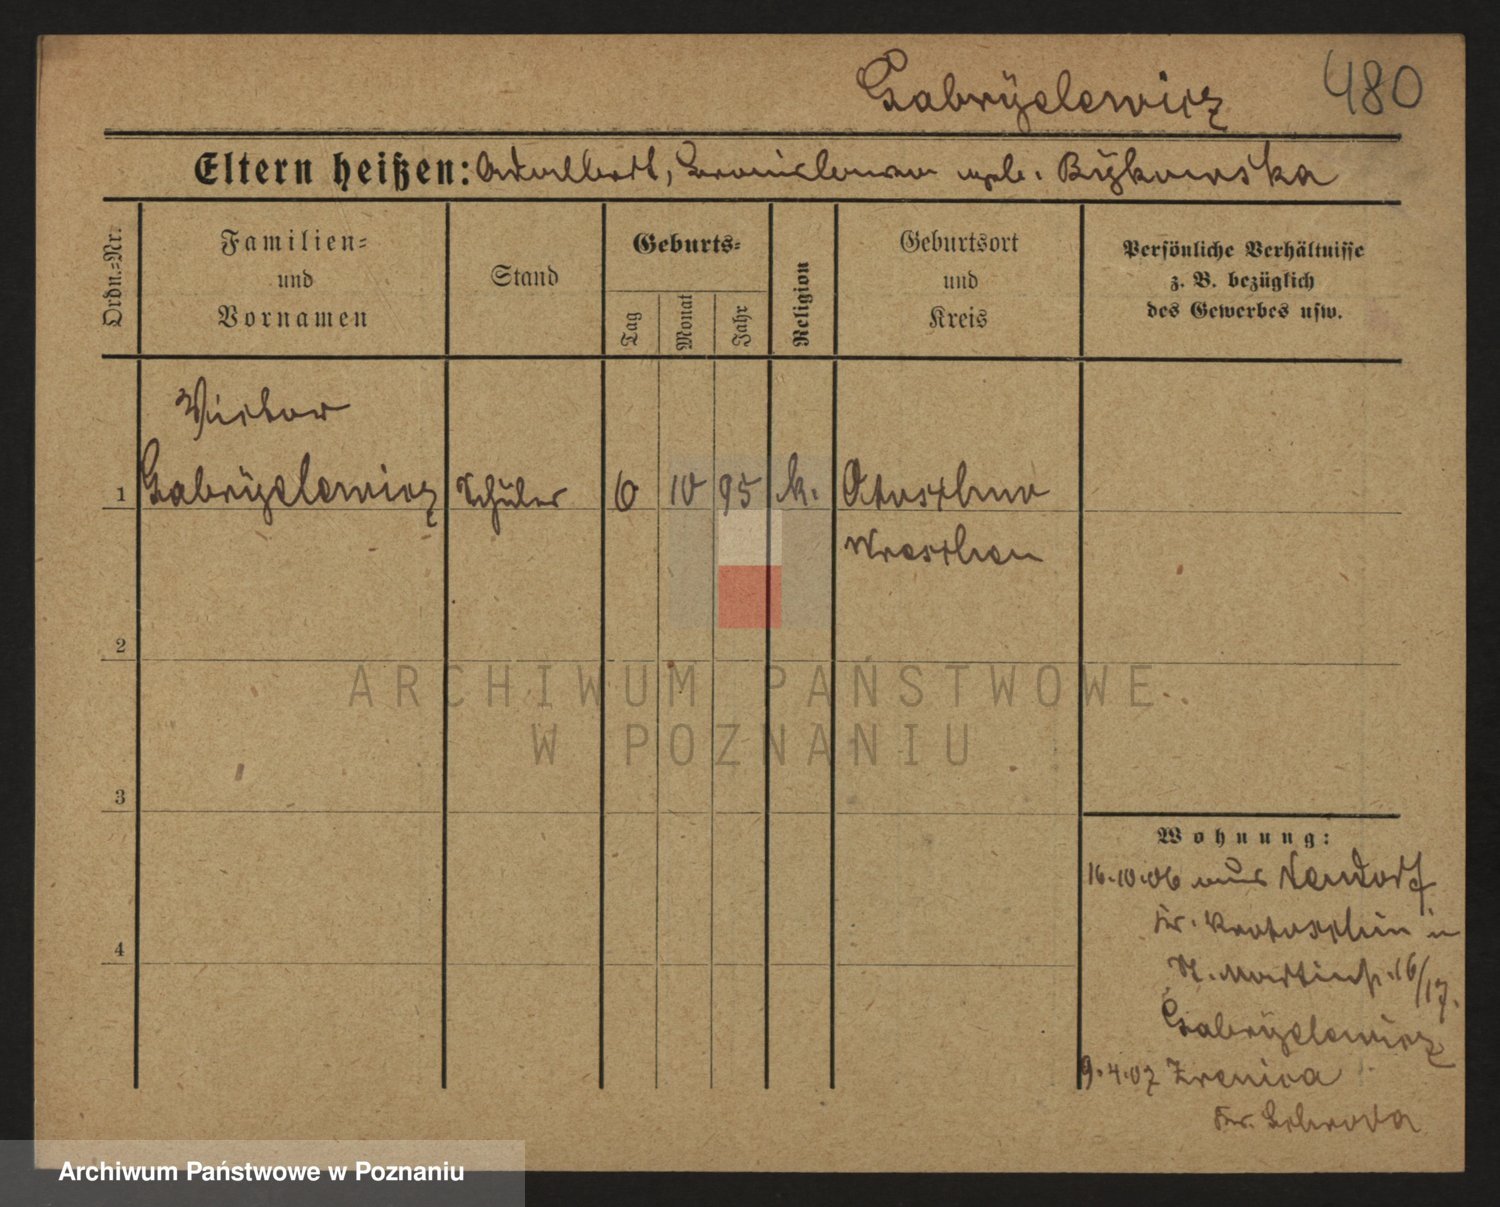 Gabryelewicz 480
Eltern heißen: Adalbert, Bronislawa geb. Bykowska
Ordn.=Nr.
Familien=
und
Vornamen
Stand
Geburts=
Tag
Monat
Jahr
Religion
Geburtsort
und
Kreis
Persönliche Verhältnisse
z. B. bezüglich
des Gewerbes usw.
Victor
1 Gabryelewicz Schüler 6 10 95 k.
Wreschen
2
3
4
Wohnung:
16.10.06 aus Neudorf
Kr. Krotoschin in
St. Martinstr. 16/17.
Gabryelewicz
9.4.07 Zrenica
Kr. Schroda
ARCHIWUM PAŃSTWOWE
W POZNANIU
Archiwum Państwowe w Poznaniu